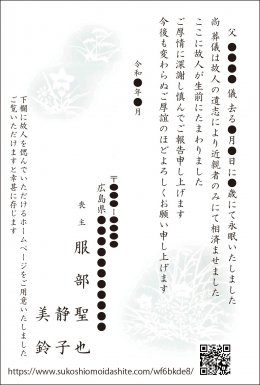 父 ●●●● 儀 去る●月●日に●歳にて永眠いたしました
尚 葬儀は故人の遺志により近親者のみにて相済ませました
ここに故人が生前にたまわりました
ご厚情に深謝し慎んでご報告申し上げます
今後も変わらぬご厚誼のほどよろしくお願い申し上げます
令和●年●月
〒●●●-●●●●
広島県●●●●●●●●●●
喪主 服部聖也
静子
美鈴
下欄に故人を偲んでいただけるホームページをご用意いたしました
ご覧いただけますと幸甚に存じます
https://www.sukoshiomoidashite.com/wf6bkde8/